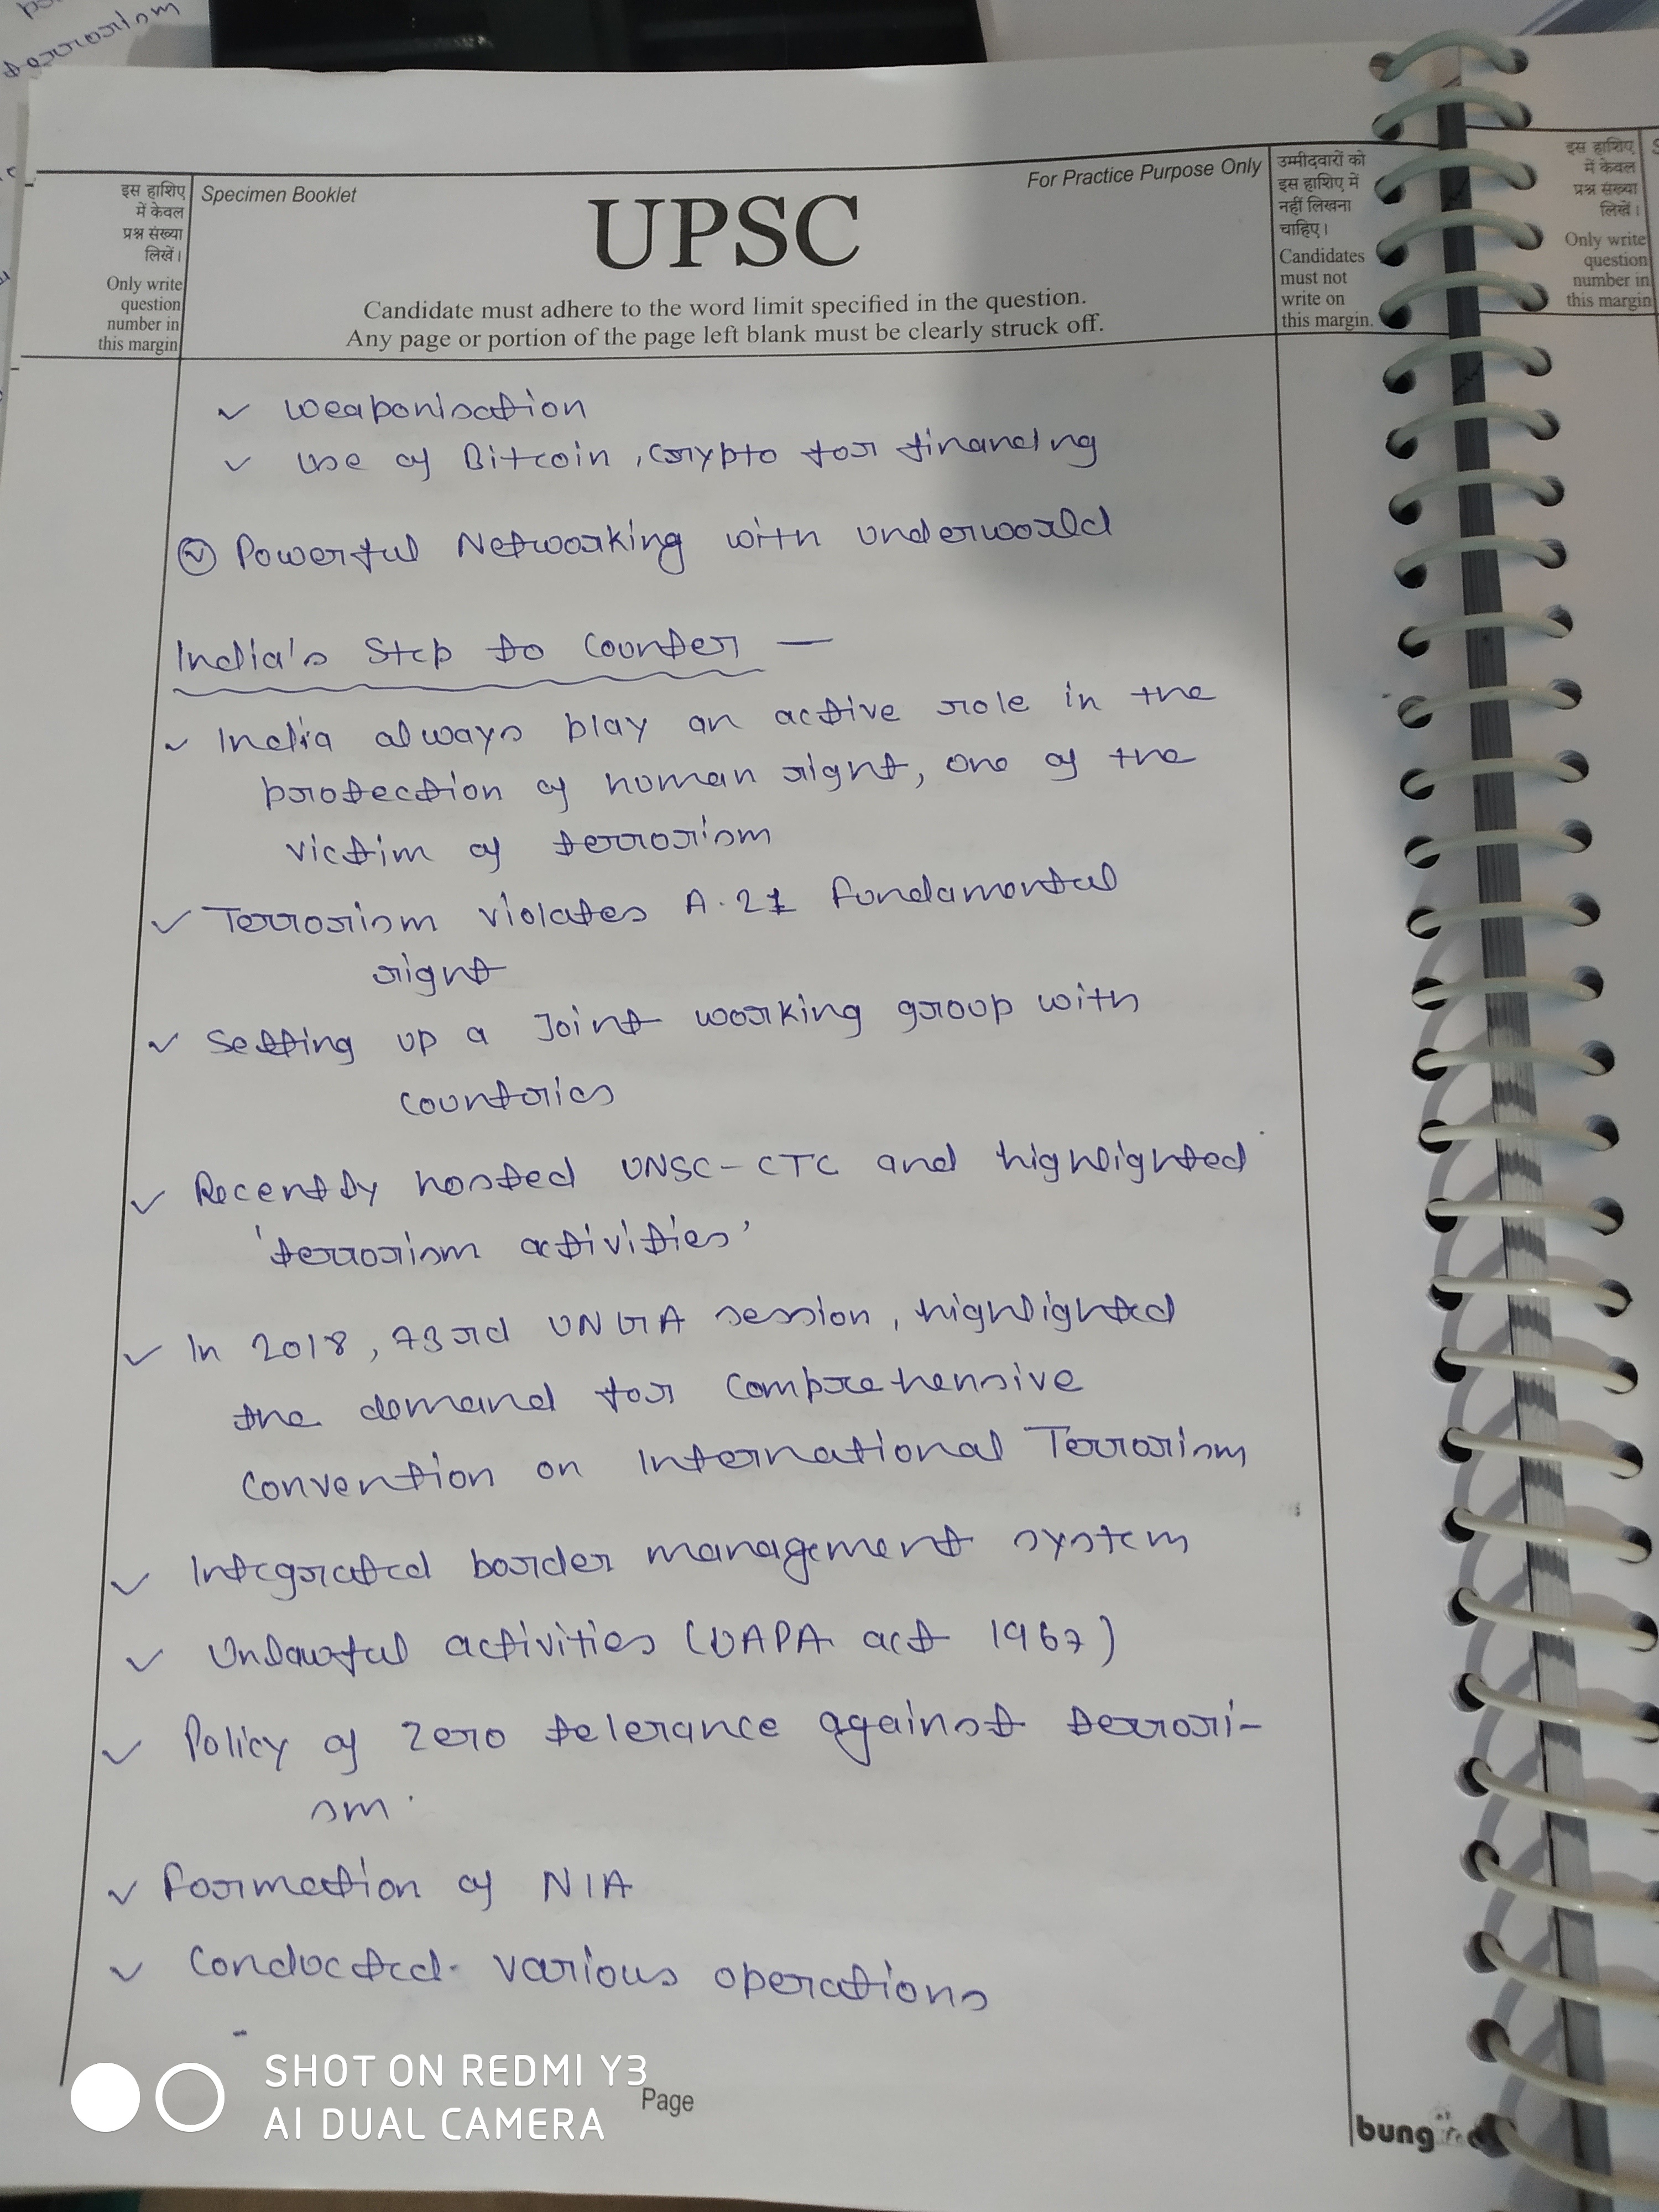 terrorism
इस हाशिए
में केवल
प्रश्न संख्या
लिखें।
Only write
question
number in
this margin
Specimen Booklet
For Practice Purpose Only
UPSC
Candidate must adhere to the word limit specified in the question.
Any page or portion of the page left blank must be clearly struck off.
उम्मीदवारों को
इस हाशिए में
नहीं लिखना
चाहिए।
Candidates
must not
write on
this margin.
इस हाशिए
में केवल
प्रश्न संख्या
लिखें।
Only write
question
number in
this margin
✓ weaponisation
✓ use of Bitcoin, crypto for financing
Powerful Networking with underworld
India's Step to Counter —
✓ India always play an active role in the
protection of human right, one of the
victim of terrorism
✓ Terrorism violates A.21 fundamental
right
✓ Setting up a Joint working group with
countries
✓ Recently hosted UNSC-CTC and highlighted
'terrorism activities'
✓ In 2018, 73rd UNGA session, highlighted
the demand for Comprehensive
Convention on International Terrorism
✓ Integrated border management system
✓ Unlawful activities (UAPA act 1967)
✓ Policy of zero telerance against terrori-
sm.
✓ Formation of NIA
✓ Conducted various operations
SHOT ON REDMI Y3
AI DUAL CAMERA
Page
bung